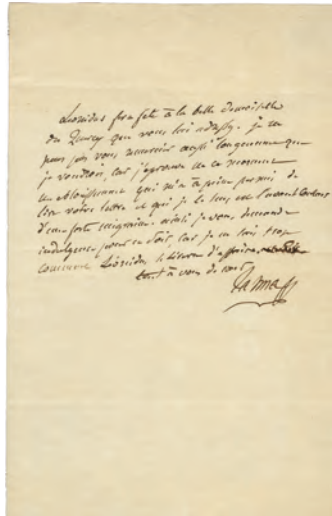 Léonidas fera fête à la belle demoiselle
du Quercy que vous lui adressez. je ne
puis pas vous remercier aussi longuement que
je voudrois, car j'éprouve en ce moment
un éblouissement qui m'a à peine permis de
lire votre lettre et qui je le sens est l'avant coureur
d'une forte migraine ainsi je vous demande
indulgence pour ce soir, car je ne sais trop
comment Léonidas se tirera d'affaire.
tout à vous de cœur
Talma